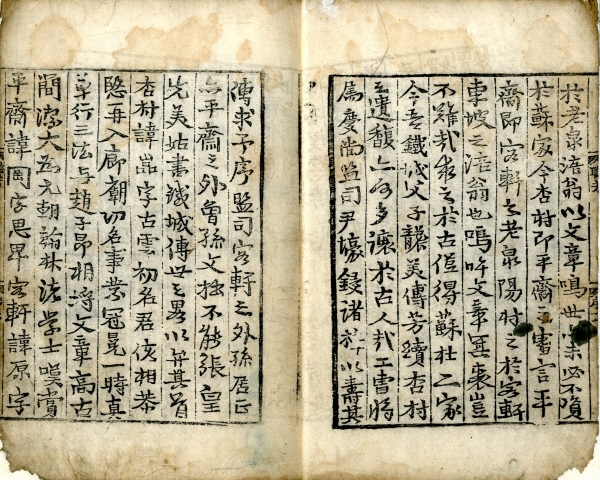 於老泉涪翁以文章鳴世業必不隕
於蘇家今杏村即平齋之審言平
齋即容軒之老泉陽村之於容軒
東坡之涪翁也嗚呼文章寔裏豈
不難哉求之於古僅得蘇杜二家
今吾鐵城父子儱美傳芳續杏村
之遺馥亦何多讓於古人哉工曹將
爲慶尚監司尹壕鋟諸梓以壽其
傳求予序監司容軒之外孫居正
亦平齋之外曾孫文拙不能張皇
先美姑書鐵城傳世之畧以弁其首
杏村諱嵒字古雲初名君侅相恭
愍再入廊廟功名事業冠冕一時真
草行三法与趙子昂相將文章高古
簡潔大爲元朝翰林法學士嘆賞
平齋諱岡字思卑容軒諱原字